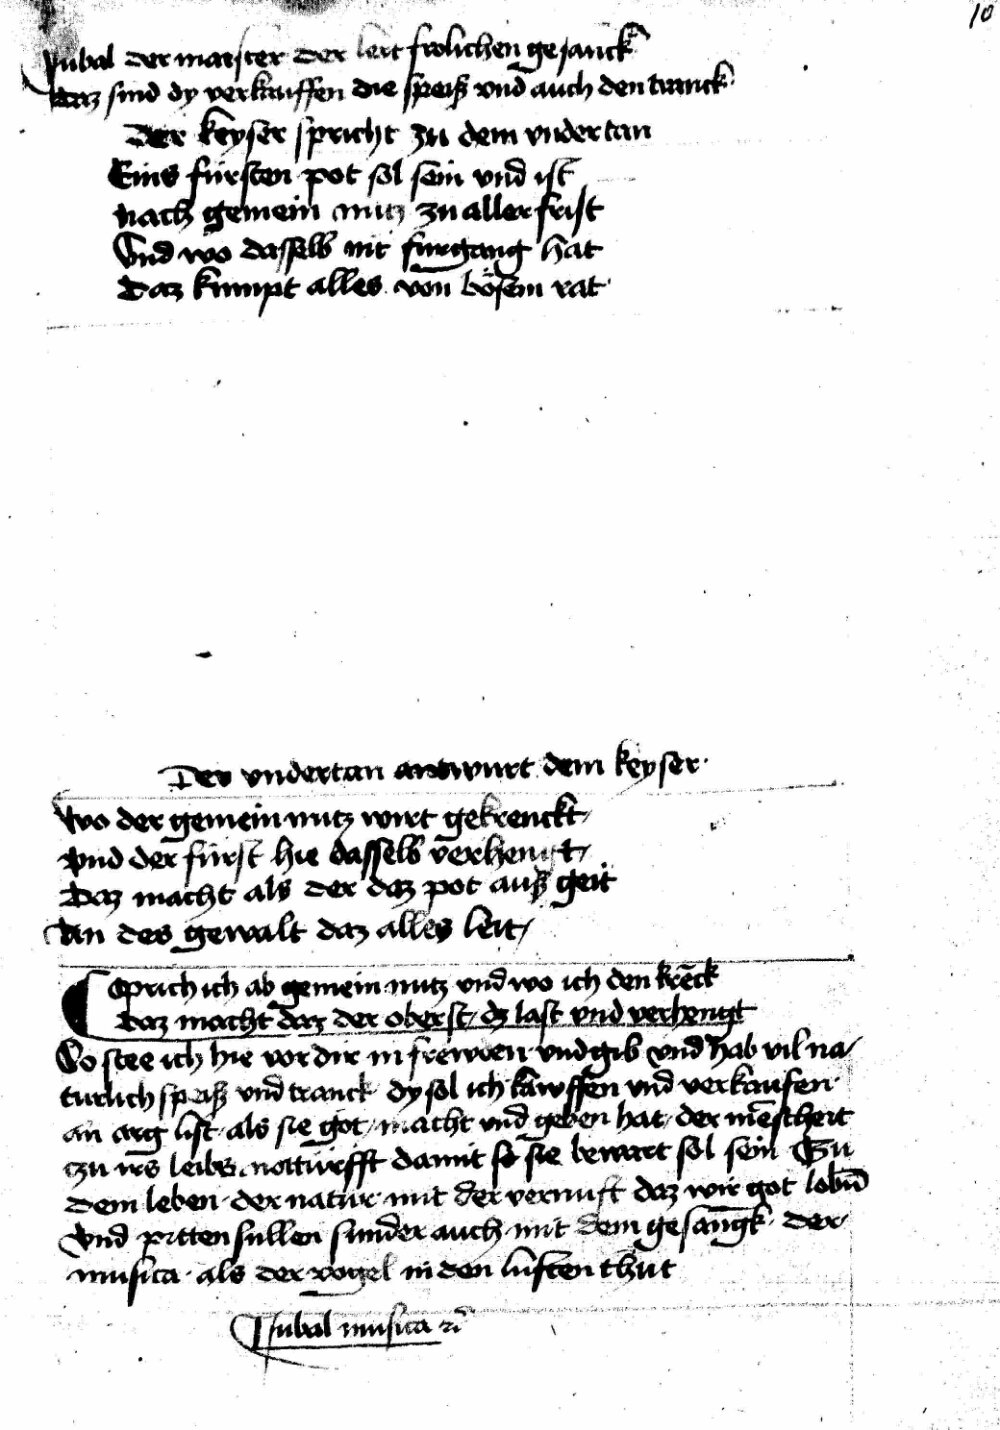 10
Jubal der maister der leit frolichen gesanck
Daz sind dy verkauffen die speiß vnd auch den tranck
Der keyser spricht zu dem vndertan
Eins fürsten pot sol sein vnd ist
nach gemein nutz zu aller frist
Vnd wo dasselb nit furgang hat
Daz kumpt alles von bösem rat
Der vndertan antwurt dem keyser
Wo der gemein nutz wirt gekrenckt
vnd der fürst hie dasselb verhengt
Daz macht als der daz pot auß geit
An des gewalt daz alles leit
Sprich ich ab gemein nutz vnd wo ich den krēck
Daz macht daz der oberst dz last vnd verhengt
So stee ich hie vor dir in frewden vnd gib vnd hab vil na/
turlich speiß vnd tranck dy sol ich kawffen vnd verkaufen
an arg list als sie got macht vnd geben hat der mēscheit
czu irs leibs notturfft damit so sie bewart sol sein Zu
dem leben der natur mit der vernuft daz wir got lobn̄
Vnd pitten sullen sunder auch mit dem gesangk der
musica als der vogel in den lüften thut
Jubal musica